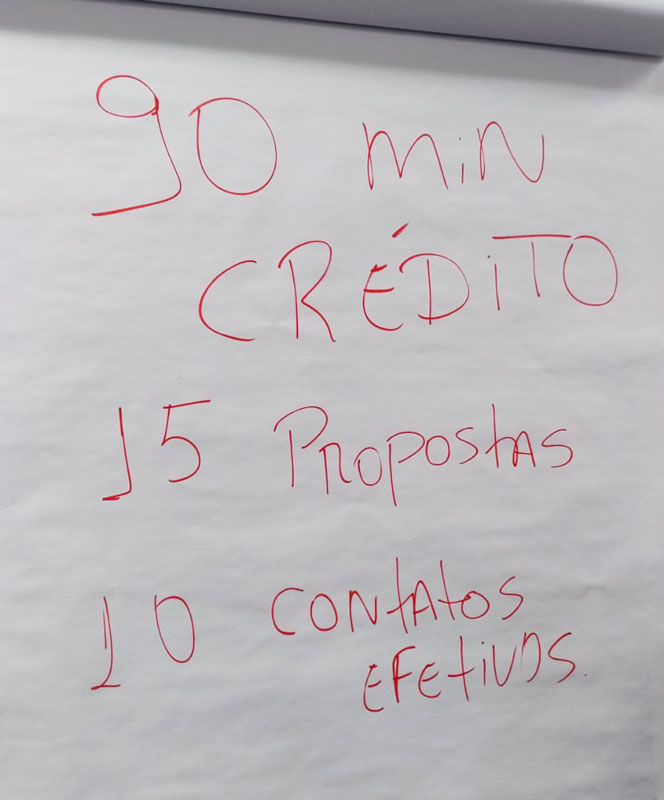 90 MiN
CRÉDiTO
15 PROPOSTAS
10 CONTATOS
EFETIVOS.